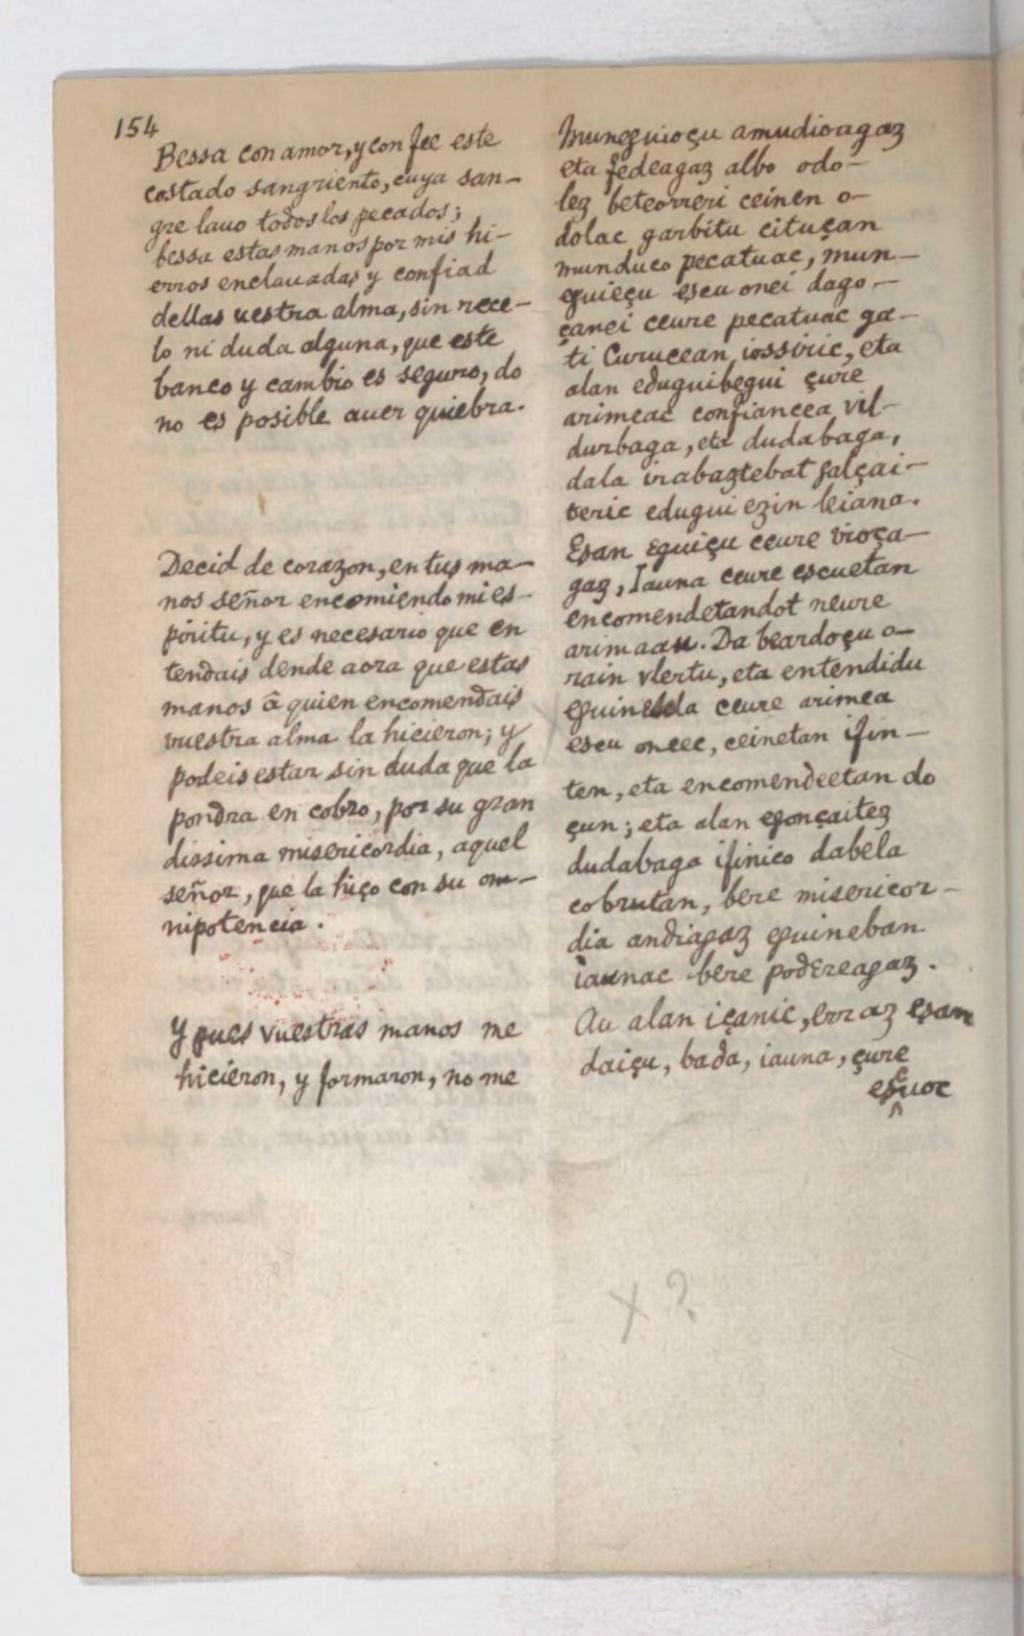 154
Bessa con amor, y con fee este
costado sangriento, cuya san-
gre lauo todos los pecados;
bessa estas manos por mis hi-
erros enclauadas y confiad
dellas uestra alma, sin rece-
lo ni duda alguna, que este
banco y cambio es seguro, do
no es posible auer quiebra.
Decid de corazon, en tus ma-
nos señor encomiendo mi es-
piritu, y es necesario que en
tendais dende aora que estas
manos â quien encomendais
vuestra alma la hicieron; y
podeis estar sin duda que la
pondra en cobro, por su gran
dissima misericordia, aquel
señor, que la hiço con su om-
nipotencia.
Y pues vuestras manos me
hicieron, y formaron, no me
Muneguioçu amudioagaz
eta fedeagaz albo odo-
lez beteorreri ceinen o-
dolac garbitu cituçan
munduco pecatuac, mun-
eguieçu escu onei dago-
çanei ceure pecatuac ga-
ti Curucean iossiric, eta
alan eduguibegui çure
arimeac confiancea vil-
durbaga, eta dudabaga,
dala irabaztebat galçai-
teric edugui ezin leiana.
Esan eguiçu ceure vioça-
gaz, Iauna ceure escuetan
encomendetandot neure
arimaau. Da beardoçu o-
rain vlertu, eta entendidu
eguinebla ceure arimea
escu onec, ceinetan ifin-
ten, eta encomendeetan do
çun; eta alan egonçaitez
dudabaga ifinico dabela
cobrutan, bere misericor-
dia andiagaz eguineban
iaunac bere podereagaz.
Au alan içanic, erraz eşan
daiçu, bada, iauna, çure
escuoc
x ?